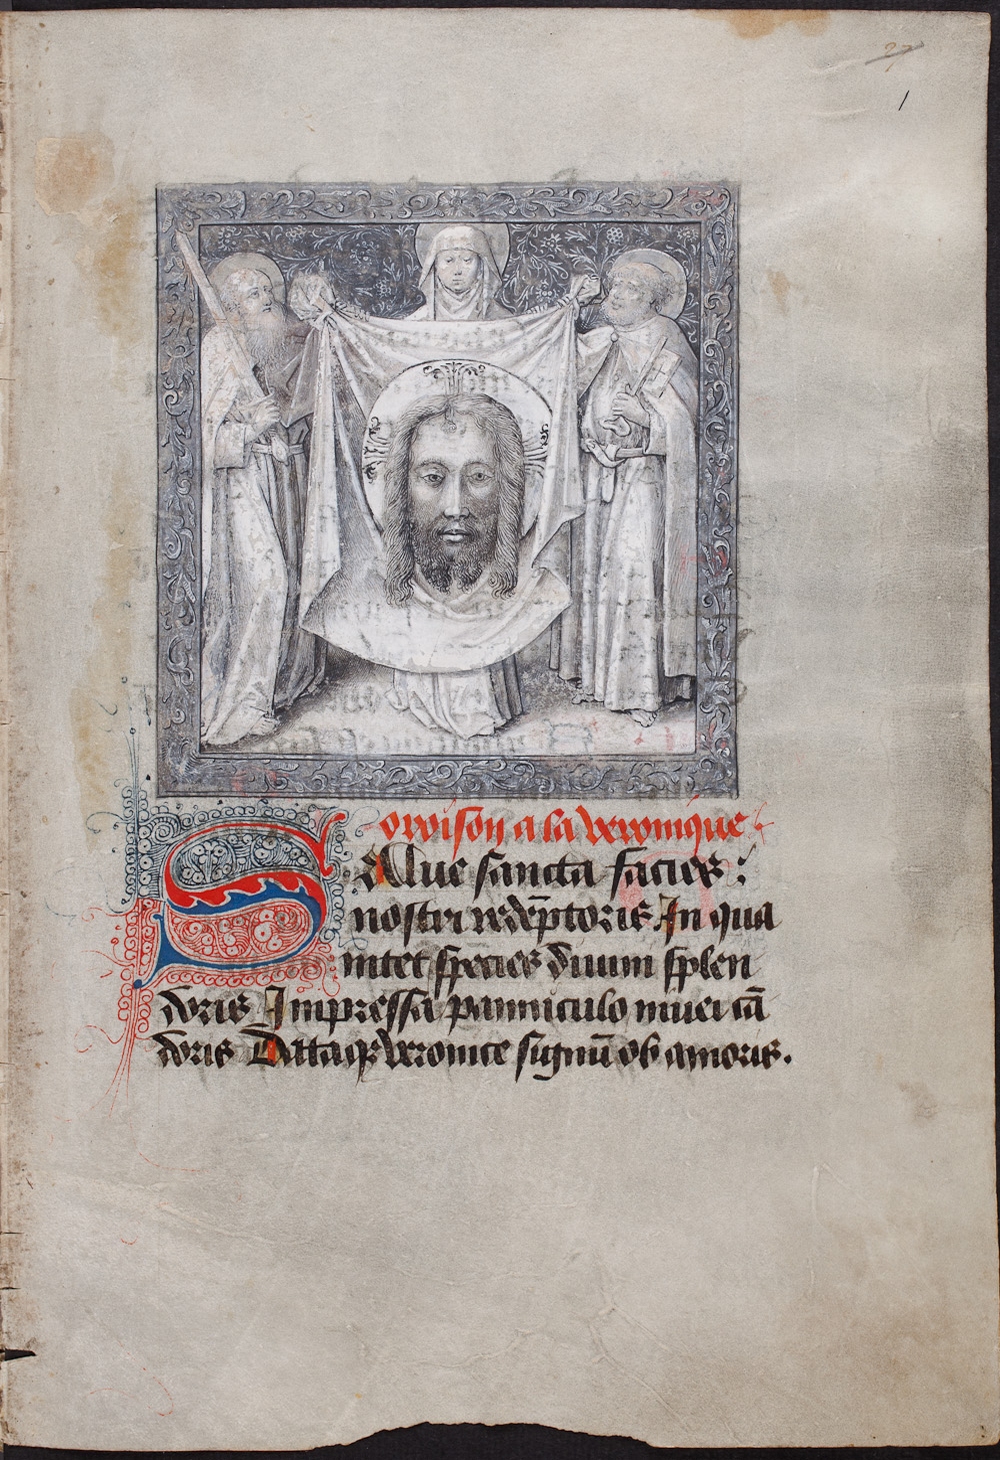 27
1
Orrison a la veronique
SAlue sancta facies :
nostri redēptoris In qua
nitet species diuini splen
doris Impressa panniculo niuei cā
doris Dataqꝫ veronice signū ob amoris.